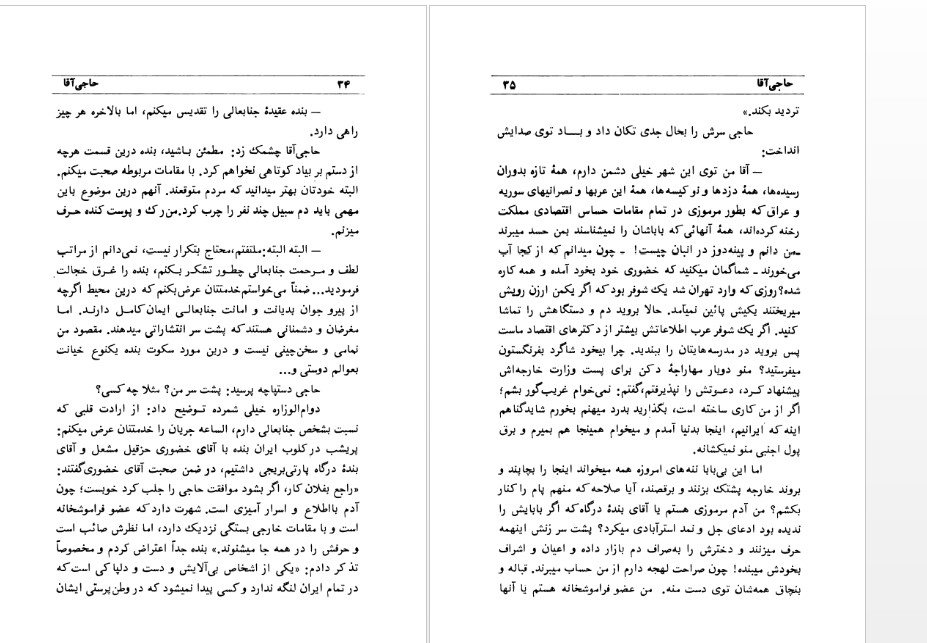 حاجی‌آقا ۳۴
ـ بنده عقیدهٔ جنابعالی را تقدیس میکنم، اما بالاخره هر چیز
راهی دارد.
حاجی‌آقا چشمک زد: مطمئن باشید، بنده درین قسمت هرچه
از دستم بر بیاد کوتاهی نخواهم کرد. با مقامات مربوطه صحبت میکنم.
البته خودتان بهتر میدانید که مردم متوقعند. آنهم درین موضوع باین
مهمی باید دم سبیل چند نفر را چرب کرد. من رک و پوست کنده حرف
میزنم.
ـ البته البته: ملتفتم، محتاج بتکرار نیست، نمی‌دانم از مراتب
لطف و مرحمت جنابعالی چطور تشکر بکنم، بنده را غرق خجالت
فرمودید... ضمناً می‌خواستم خدمتتان عرض بکنم که درین محیط اگرچه
از پیرو جوان بدیانت و امانت جنابعالی ایمان کامل دارند. اما
مغرضان و دشمنانی هستند که پشت سر انتشاراتی میدهند. مقصود من
نمامی و سخن‌چینی نیست و درین مورد سکوت بنده یکنوع خیانت
بعوالم دوستی و...
حاجی دستپاچه پرسید: پشت سر من؟ مثلا چه کسی؟
دوام‌الوزاره خیلی شمرده توضیح داد: از ارادت قلبی که
نسبت بشخص جنابعالی دارم، الساعه جریان را خدمتتان عرض میکنم:
پریشب در کلوب ایران بنده با آقای خضوری حزقیل مشعل و آقای
بندهٔ درگاه پارتی‌بریجی داشتیم، در ضمن صحبت آقای خضوری‌گفتند:
«راجع بفلان کار، اگر بشود موافقت حاجی را جلب کرد خوبست؛ چون
آدم بااطلاع و اسرار آمیزی است. شهرت دارد که عضو فراموشخانه
است و با مقامات خارجی بستگی نزدیک دارد، اما نظرش صائب است
و حرفش را در همه جا میشنوند.» بنده جداً اعتراض کردم و مخصوصاً
تذکر دادم: «یکی از اشخاص بی‌آلایش و دست و دلپا کی است که
در تمام ایران لنگه ندارد و کسی پیدا نمیشود که در وطن‌پرستی ایشان
حاجی‌آقا ۳۵
تردید بکند.»
حاجی سرش را بحال جدی تکان داد و بـاد توی صدایش
انداخت:
ـ آقا من توی این شهر خیلی دشمن دارم، همهٔ تازه بدوران
رسیده‌ها، همهٔ دزدها و نوکیسه‌ها، همهٔ این عربها و نصرانیهای سوریه
و عراق که بطور مرموزی در تمام مقامات حساس اقتصادی مملکت
رخنه کرده‌اند، همهٔ آنهائی که باباشان را نمیشناسند بمن حسد میبرند
ـمن دانم و پینه‌دوز در انبان چیست! ـ چون میدانم که از کجا آب
می‌خورند ـ شماگمان میکنید که خضوری خود بخود آمده و همه کاره
شده؟ روزی که وارد تهران شد یک شوفر بود که اگر یکمن ارزن رویش
میریختند یکیش پائین نمیآمد. حالا بروید دم و دستگاهش را تماشا
کنید. اگر یک شوفر عرب اطلاعاتش بیشتر از دکترهای اقتصاد ماست
پس بروید در مدرسه‌هایتان را ببندید. چرا بیخود شاگرد بفرنگستون
میفرستید؟ منو دوبار مهاراجهٔ دکن برای پست وزارت خارجه‌اش
پیشنهاد کرد، دعوتش را نپذیرفتم، گفتم: نمی‌خوام غریب‌گور بشم؛
اگر از من کاری ساخته است، بگذارید بدرد میهنم بخورم شاید گناهم
اینه که ایرانیم، اینجا بدنیا آمدم و میخوام همینجا هم بمیرم و برق
پول اجنبی منو نمیکشانه.
اما این بی‌بابا ننه‌های امروزه همه میخواند اینجا را بچاپند و
بروند خارجه پشتک بزنند و برقصند، آیا صلاحه که منهم پام را کنار
بکشم؟ من آدم مرموزی هستم یا آقای بندهٔ درگاه که اگر بابایش را
ندیده بود ادعای جل و نمد استرآبادی میکرد؟ پشت سر زنش اینهمه
حرف میزنند و دخترش را به‌صراف دم بازار داده و اعیان و اشراف
بخودش میبنده! چون صراحت لهجه دارم از من حساب میبرند. قباله و
بنچاق همه‌شان توی دست منه. من عضو فراموشخانه هستم یا آنها